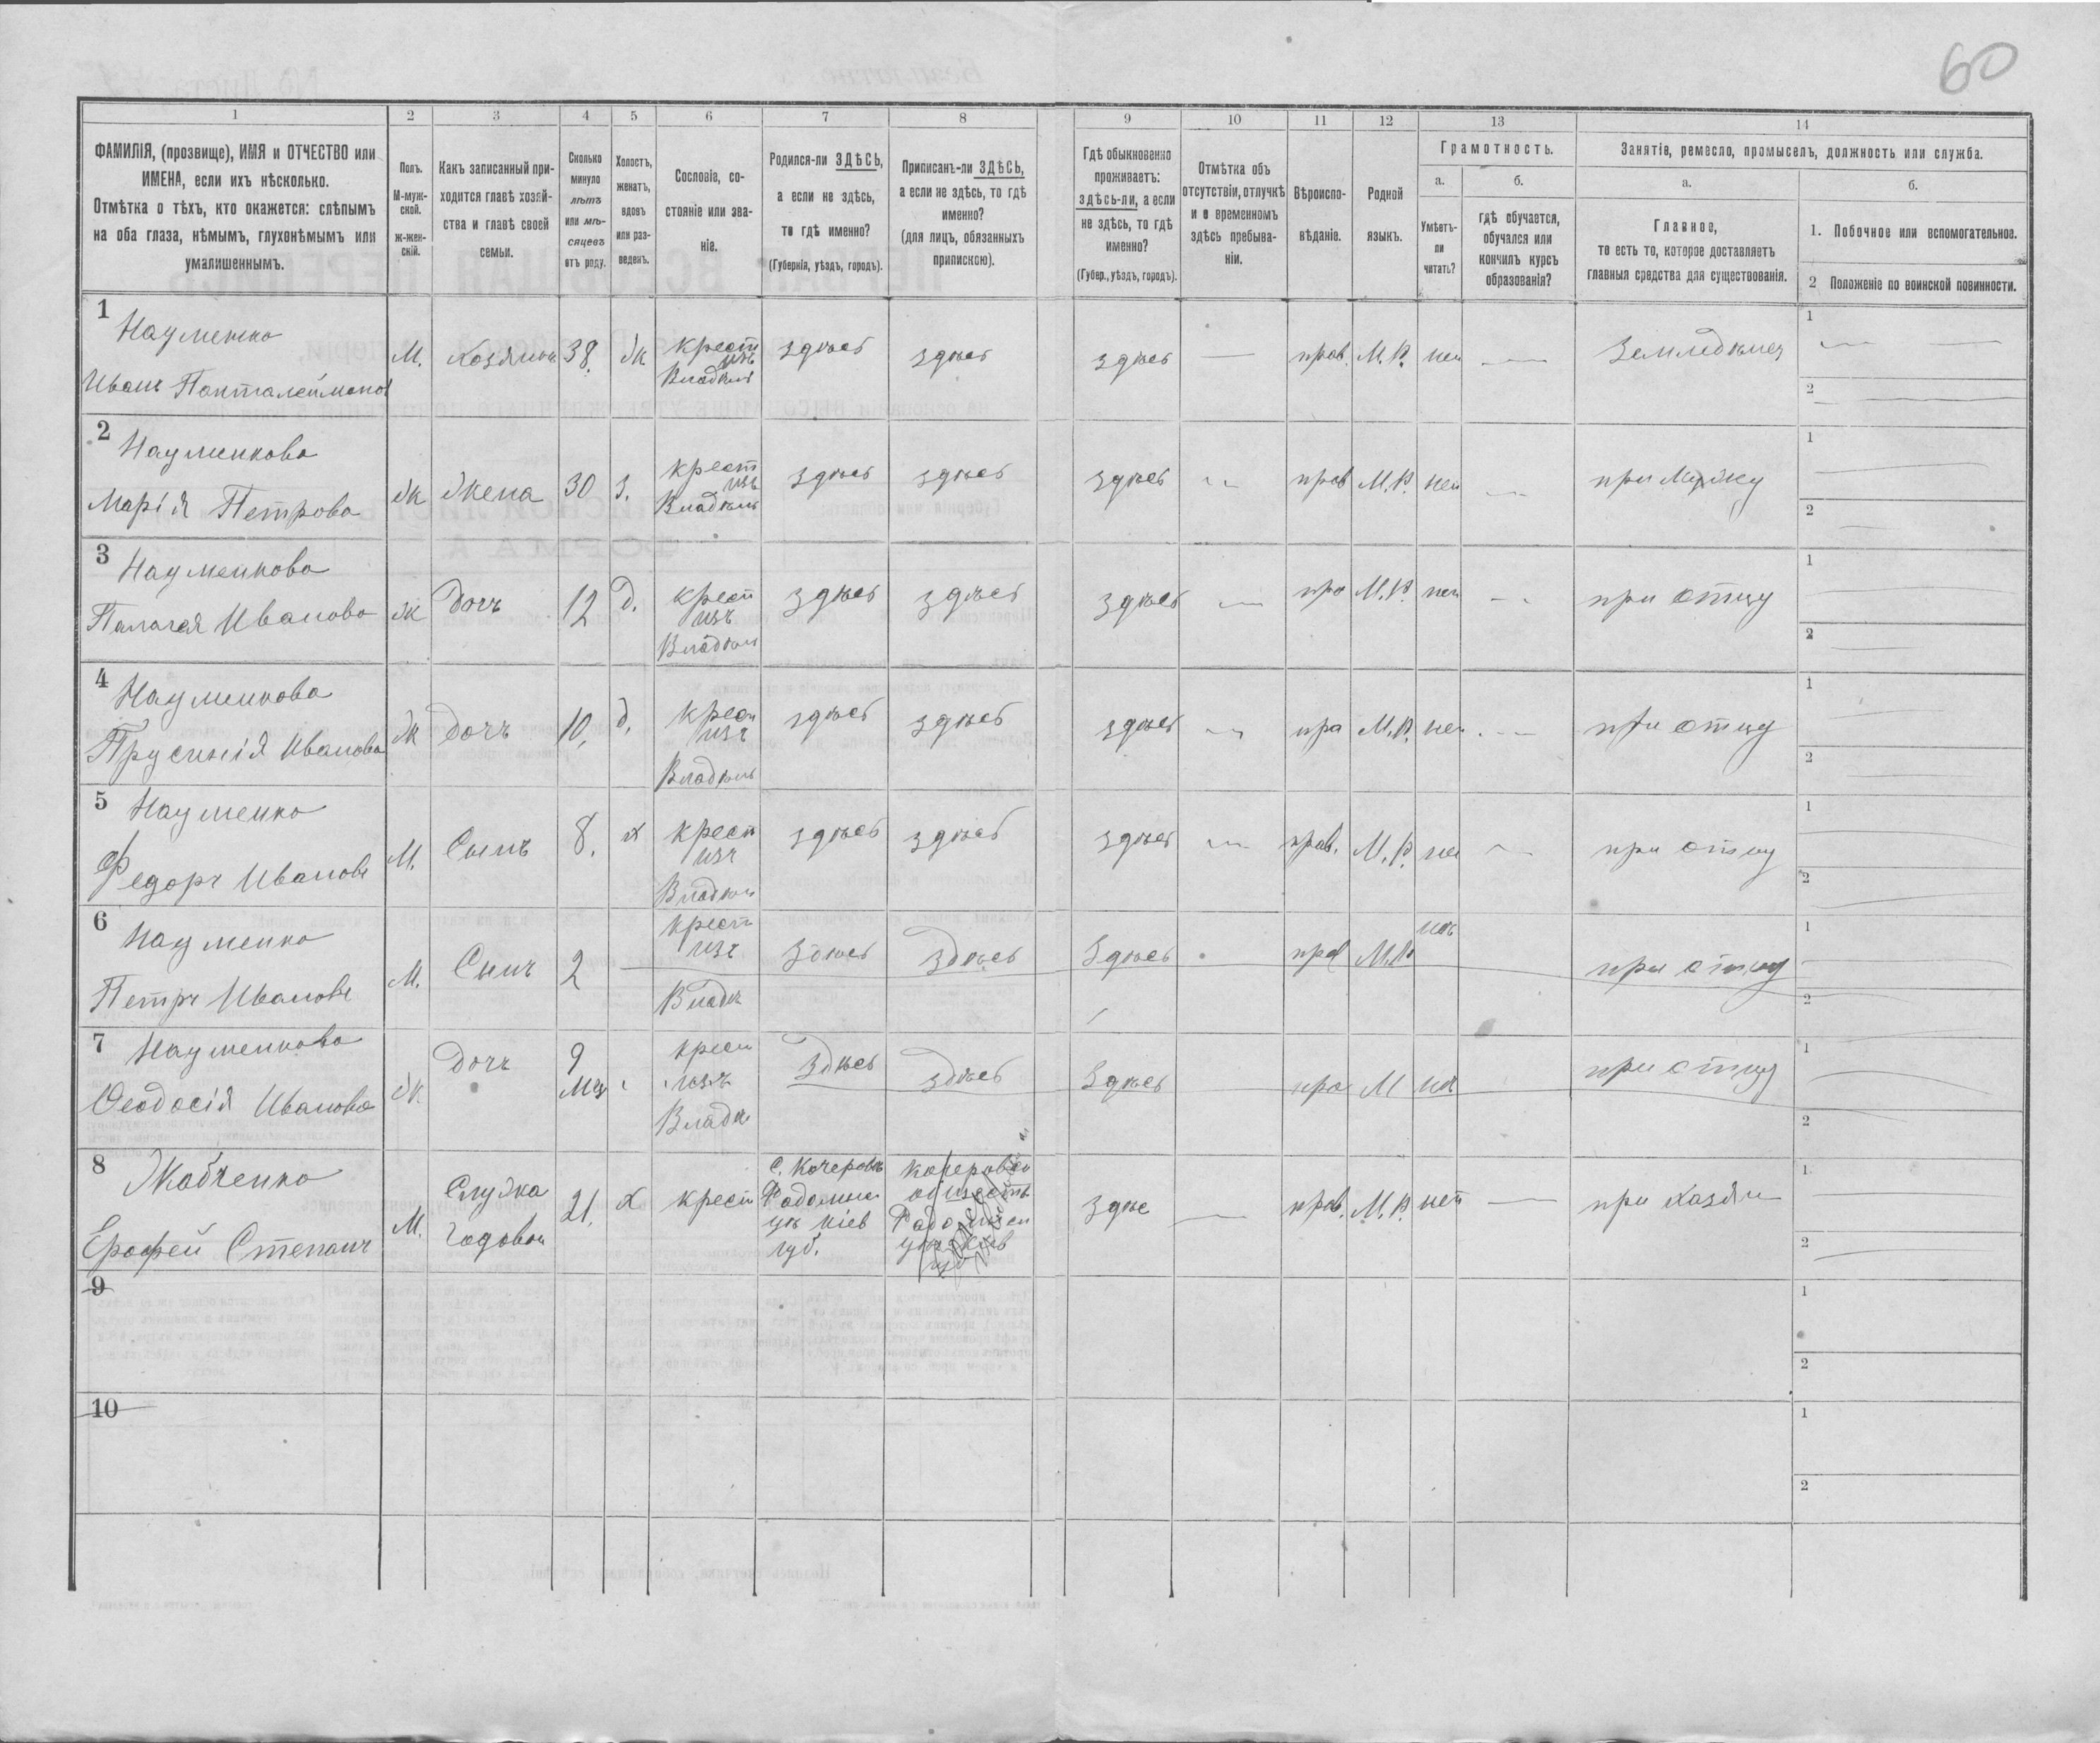 60
1 2 3 4 5 6 7 8 9 10 11 12 13 14
ФАМИЛІЯ, (прозвище), ИМЯ и ОТЧЕСТВО или
ИМЕНА, если ихъ нѣсколько.
Отмѣтка о тѣхъ, кто окажется: слѣпымъ
на оба глаза, нѣмымъ, глухонѣмымъ или
умалишеннымъ.
Полъ.
М-муж-
ской.
ж-жен-
скій.
Какъ записанный при-
ходится главѣ хозяй-
ства и главѣ своей
семьи.
Сколько
минуло
лѣтъ
или мѣ-
сяцевъ
отъ роду.
Холостъ,
женатъ,
вдовъ
или раз-
веденъ.
Сословіе, со-
стояніе или зва-
ніе.
Родился-ли ЗДѢСЬ,
а если не здѣсь,
то гдѣ именно?
(Губернія, уѣздъ, городъ).
Приписанъ-ли ЗДѢСЬ,
а если не здѣсь, то гдѣ
именно?
(для лицъ, обязанныхъ
припискою).
Гдѣ обыкновенно
проживаетъ:
здѣсь-ли, а если
не здѣсь, то гдѣ
именно?
(Губер., уѣздъ, городъ).
Отмѣтка объ
отсутствіи, отлучкѣ
и о временномъ
здѣсь пребыва-
ніи.
Вѣроиспо-
вѣданіе.
Родной
языкъ.
Грамотность.
а.
Умѣетъ-
ли
читать?
б.
гдѣ обучается,
обучался или
кончилъ курсъ
образованія?
Занятіе, ремесло, промыселъ, должность или служба.
а.
Главное,
то есть то, которое доставляетъ
главныя средства для существованія.
б.
1. Побочное или вспомогательное.
2 Положеніе по воинской повинности.
1
Науменко М. Хозяинъ 38. ж крест здѣсь здѣсь здѣсь — прав. М.Р. нет — Земледѣлец 1
изъ
Иванъ Пантелеймонов Владѣль 2
2
Науменкова ж жена 30 з. крест здѣсь здѣсь здѣсь прав М.Р. нет при Мужу 1
изъ
Марія Петрова Владѣль 2
3
Науменкова ж дочь 12 д. крест здѣсь здѣсь здѣсь — пра М.Р. нет при отцу 1
изъ
Палагея Иванова Владѣль 2
4
Науменкова ж дочь 10. д. крест здѣсь здѣсь здѣсь пра М.Р. нет при отцу 1
изъ
Иванова Владѣль 2
5
Науменко М. Сынъ 8. х крест здѣсь здѣсь здѣсь прав. М.Р. нет при отцу 1
изъ
Федоръ Ивановъ Владѣль 2
6
Науменко М. Сынъ 2 крест здѣсь здѣсь здѣсь прав М.Р. нѣт при отцу 1
изъ
Петръ Ивановъ Владѣ 2
7
Науменкова ж. дочь 9 крест здѣсь здѣсь здѣсь пра М нѣт при отцу 1
Мц изъ
Феодосія Иванова Владѣ 2
8
Жабченко М. Служка 21. х крест С. Кочеровъ Кочеровск здѣс — прав. М.Р. нет — при хозяи 1
Ерофей Степанъ годовой Радомыс обществ
уѣ Кіев Радомысл
губ. 2
9
1
2
10
1
2